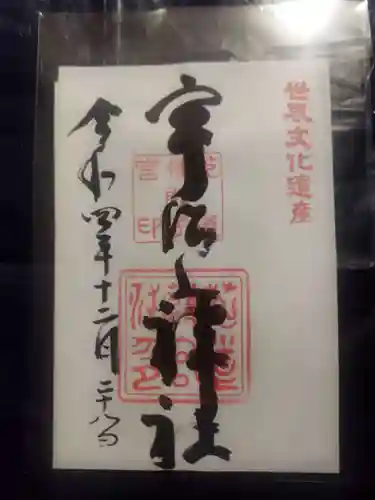 世界文化遺産
宇治上神社
令和四年十二月二十八日